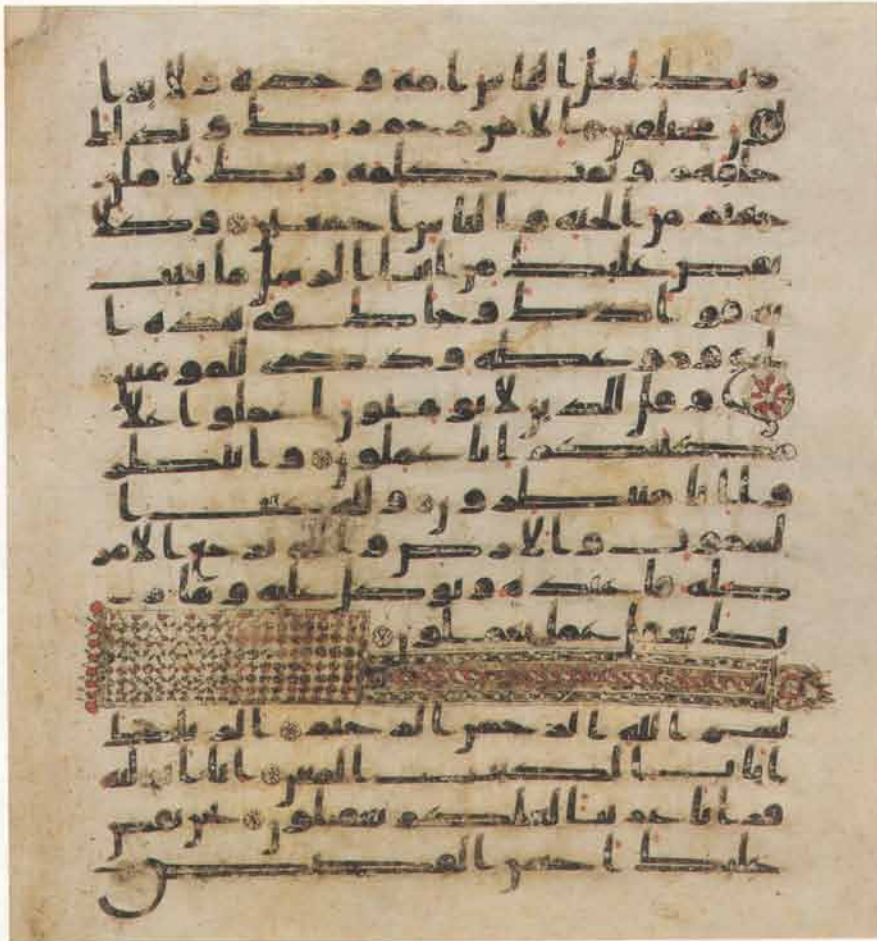 ربك لجعل الناس امة وحدة ولا يزا
لون مختلفين الا من رحم ربك ولذلك
خلقهم وتمت كلمة ربك لاملن
جهنم من الجنة والناس اجمعين وكلا
نقص عليك من انبا الرسل ما نثبت
به فوادك وجاك في هذه ا
لحق وموعظة وذكرى للمومنين
وقل للذين لا يومنون اعملوا علا
مكنتكم انا عملون وانتظر
وا انا منتظرون ولله غيب ا
لسموت والارض واليه يرجع الامر
كله فاعبده وتوكل عليه وما ر
بك بغفل عما تعملون
بسم الله الرحمن الرحيم الر تلك
ايت الكتب المبين انا انزلنه
قرانا عربيا لعلكم تعقلون نحن نقص
عليك احسن القصص